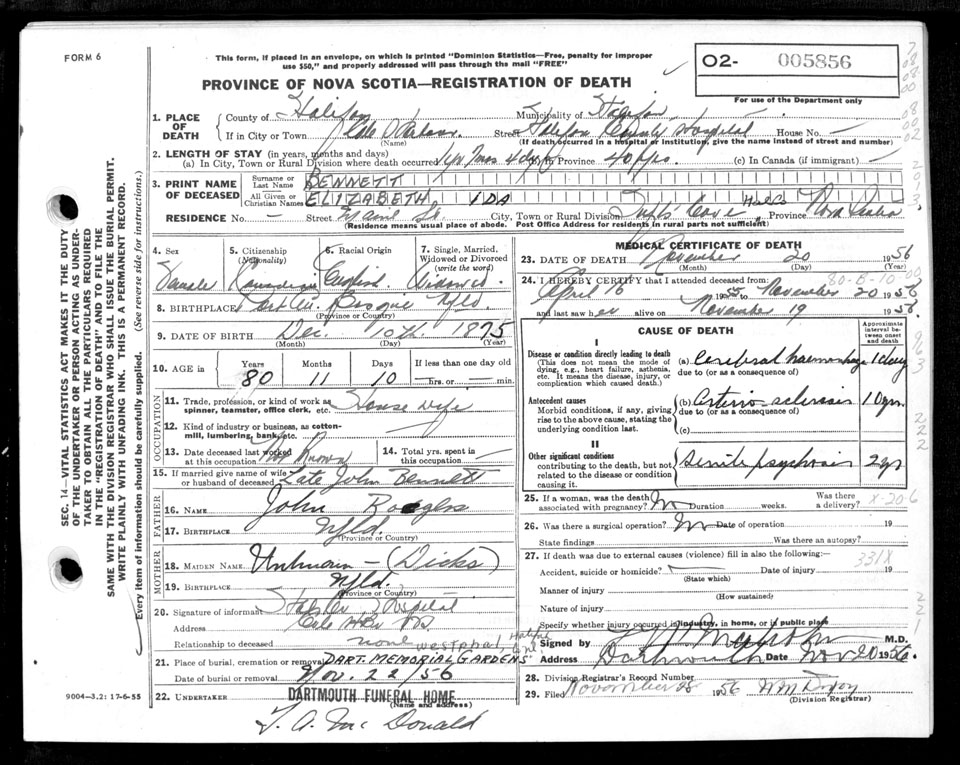 FORM 6
This form, if placed in an envelope, on which is printed "Dominion Statistics—Free, penalty for improper
use $50," and properly addressed will pass through the mail "FREE"
O2- 005856
For use of the Department only
PROVINCE OF NOVA SCOTIA—REGISTRATION OF DEATH
1. PLACE OF DEATH
County of Halifax Municipality of Halifax
If in City or Town Cole Harbour Street Halifax County Hospital House No. —
(Name) (If death occurred in a hospital or institution, give the name instead of street and number)
2. LENGTH OF STAY (in years, months and days)
(a) In City, Town or Rural Division where death occurred 1 yr 7 mos 4 dys (b) Province 40 yrs. (c) In Canada (if immigrant) —
3. PRINT NAME OF DECEASED
Surname or Last Name BENNETT
All Given or Christian Names ELIZABETH IDA
RESIDENCE No. — Street City, Town or Rural Division Tufts Cove Province Nova Scotia
(Residence means usual place of abode. Post Office Address for residents in rural parts not sufficient)
4. Sex 5. Citizenship (Nationality) 6. Racial Origin 7. Single, Married, Widowed or Divorced (write the word)
Female Canadian English Widowed
8. BIRTHPLACE Port Aux Basque Nfld
(Province or Country)
9. DATE OF BIRTH Dec. 10th 1875
(Month) (Day) (Year)
10. AGE in Years Months Days If less than one day old
80 11 10 hrs. or min.
OCCUPATION
11. Trade, profession, or kind of work as
spinner, teamster, office clerk, etc. House wife
12. Kind of industry or business, as cotton-
mill, lumbering, bank, etc. —
13. Date deceased last worked
at this occupation Not Known
14. Total yrs. spent in
this occupation —
15. If married give name of wife
or husband of deceased Late John Bennett
FATHER
16. Name John
17. Birthplace Nfld.
(Province or Country)
MOTHER
18. MAIDEN NAME Unknown — (Dicks)
19. BIRTHPLACE Nfld.
(Province or Country)
20. Signature of informant Hospital
Address Cole Hbr NS
Relationship to deceased none
Westphal, Halifax
21. Place of burial, cremation or removal DART. MEMORIAL GARDENS
Date of burial or removal Nov. 22/56
22. UNDERTAKER DARTMOUTH FUNERAL HOME
(Name and address)
McDonald
9004—3.2: 17-6-55
MEDICAL CERTIFICATE OF DEATH
23. DATE OF DEATH November 20 1956
(Month) (Day) (Year)
80-B-10
24. I HEREBY CERTIFY that I attended deceased from:
April 16 1955 to November 20 1956
and last saw her alive on November 19 1956.
CAUSE OF DEATH
Approximate interval between onset and death
I
Disease or condition directly leading to death
(This does not mean the mode of
dying, e.g., heart failure, asthenia,
etc. It means the disease, injury, or
complication which caused death.)
(a) Cerebral haemorrhage 1 day
due to (or as a consequence of)
Antecedent causes
Morbid conditions, if any, giving
rise to the above cause, stating the
underlying condition last.
(b) Arterio-sclerosis 10 yrs.
due to (or as a consequence of)
(c)
II
Other significant conditions
contributing to the death, but not
related to the disease or condition
causing it.
Senile psychosis 2 yrs
25. If a woman, was the death
associated with pregnancy? No Duration weeks. Was there
a delivery?
X-20-6
26. Was there a surgical operation? No Date of operation 19
State findings Was there an autopsy?
27. If death was due to external causes (violence) fill in also the following:—
331X
Accident, suicide or homicide? — Date of injury 19
(State which)
Manner of injury
(How sustained)
Nature of injury
Specify whether injury occurred in industry, in home, or in public place
Signed by M.D.
Address Dartmouth Date Nov 20 1956.
28. Division Registrar's Record Number
29. Filed November 28 1956
(Division Registrar)
SEC. 14—VITAL STATISTICS ACT MAKES IT THE DUTY
OF THE UNDERTAKER OR PERSON ACTING AS UNDER-
TAKER TO OBTAIN ALL THE PARTICULARS REQUIRED
IN THE "REGISTRATION OF DEATH" AND TO FILE THE
SAME WITH THE DIVISION REGISTRAR WHO SHALL ISSUE THE BURIAL PERMIT.
WRITE PLAINLY WITH UNFADING INK. THIS IS A PERMANENT RECORD.
Every item of information should be carefully supplied. (See reverse side for instructions.)